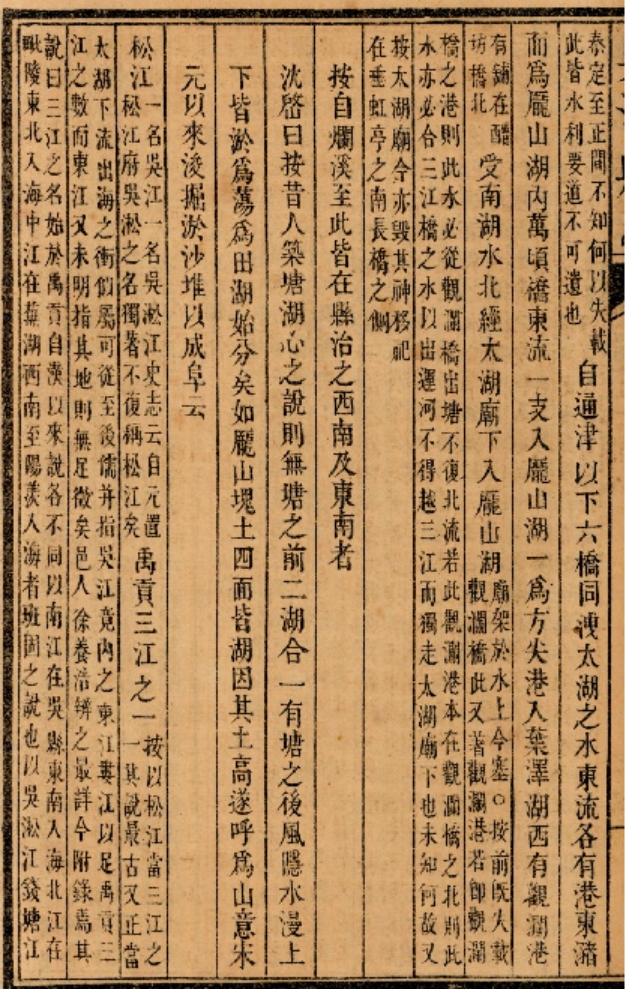 泰定至正間不知何以失載
此皆水利要道不可遺也
自通津以下六橋同洩太湖之水東流各有港東瀦
而爲龐山湖內萬頃橋東流一支入龐山湖一爲方尖港入葉澤湖西有觀瀾港
有鋪在醋
坊橋北
受南湖水北經太湖廟下入龐山湖
廟架於水上今塞○按前旣失載
觀瀾橋此又著觀瀾港若卽觀瀾
橋之港則此水必從觀瀾橋出塘不復北流若此觀瀾港本在觀瀾橋之北則此
水亦必合三江橋之水以出運河不得越三江而獨走太湖廟下也未知何故又
按太湖廟今亦毀其神移祀
在垂虹亭之南長橋之側
按自爛溪至此皆在縣治之西南及東南者
沈啓曰按昔人築塘湖心之說則無塘之前二湖合一有塘之後風隱水漫上
下皆淤爲蕩爲田湖始分矣如龐山塊土四面皆湖因其土高遂呼爲山意宋
元以來浚掘淤沙堆以成阜云
松江
一名吳江一名吳淞江史志云自元置
松江府吳淞之名獨著不復稱松江矣
禹貢三江之一
按以松江當三江之
一其說最古又正當
太湖下流出海之衝似屬可從至後儒幷指吳江竟內之東江婁江以足禹貢三
江之數而東江又未明指其地則無足徵矣邑人徐養浩辨之最詳今附錄焉其
說曰三江之名始於禹貢自漢以來說各不同以南江在吳縣東南入海北江在
毗陵東北入海中江在蕪湖西南至陽羨入海者班固之說也以吳淞江錢塘江